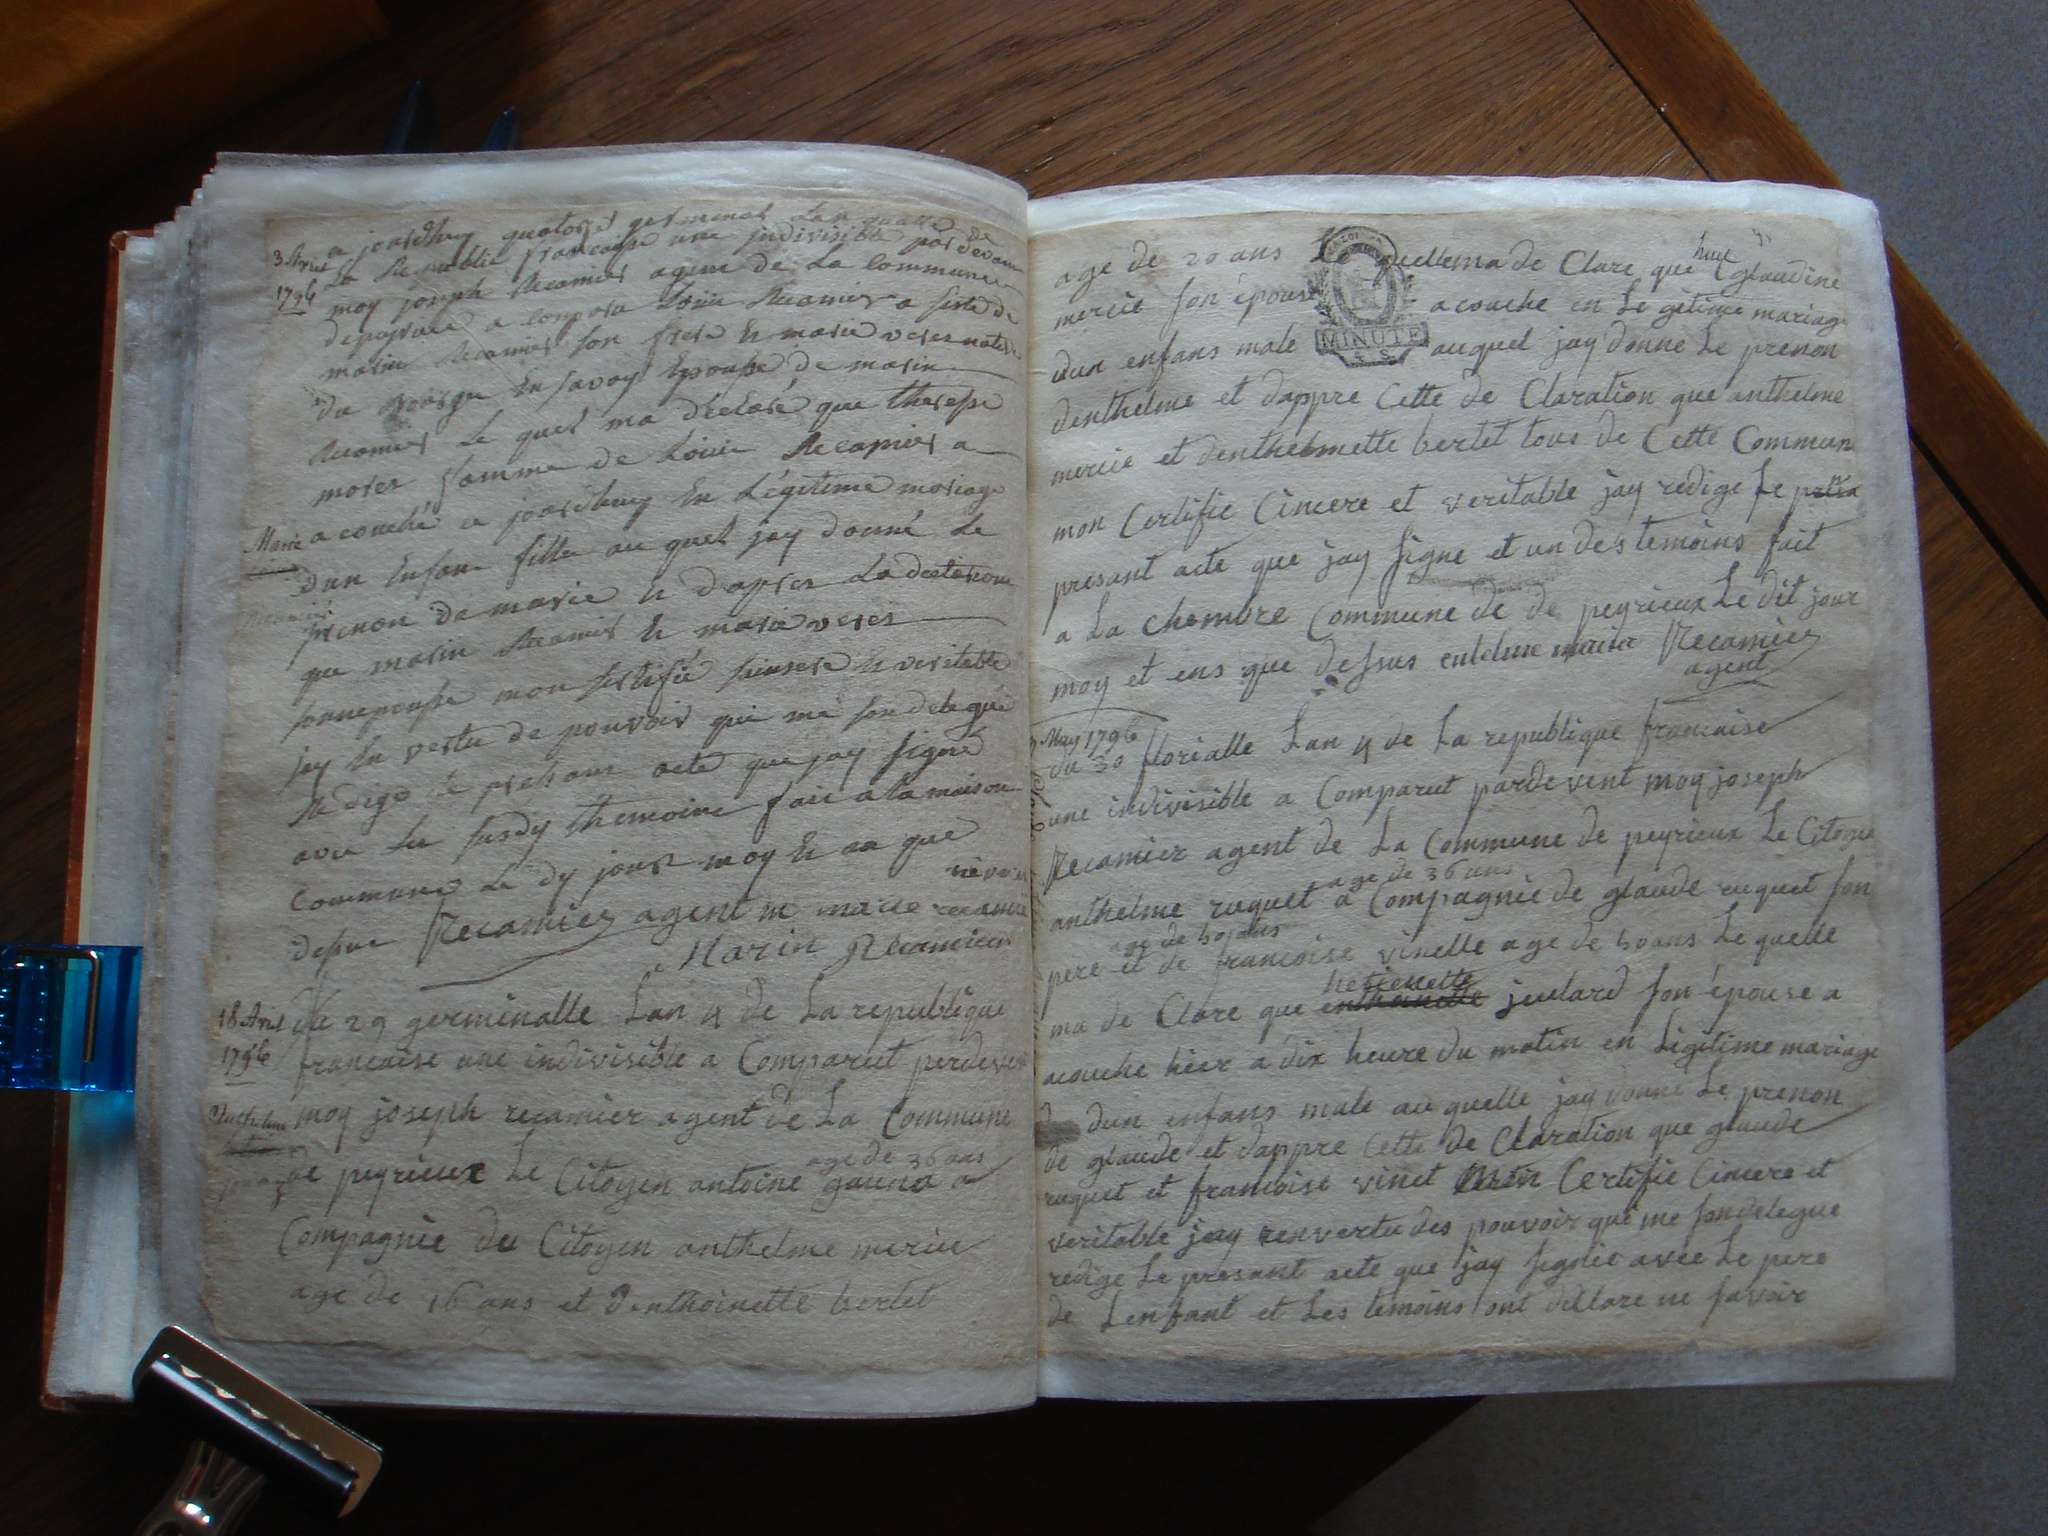 3 Avril
1796
a jourdhuy quatorze germinal Lan quatre de
La Republic francaise une jndivisible par devant
moy joseph Recamier agent de La Commune
depeyrieu a Conparu Louis Recamier a sisté de
marin Recamier son frere Et marie veres native
du Bourge En savoy Epouse de marin
Recamier Le quel ma déclaré que therese
morer famme de Louis Recamier a
Marie
a couché a jourdhuy En Légitime mariage
dun Enfant fille au quel jay donné Le
prenon de marie Et dapres La declaration
que marin Recamier Et marie veres
son epouse mon sertifié sinsere Et veritable
jay En vertu de pouvoir qui me son delegué
Redigé Le presant acte que jay signé
avec Les susdy themoins fait a la maison
Commune Le dy jour moy Et an que
desur Recamier agent m marie recamier
Marin Recamier
18 Avril
1796
du 29 germinalle Lan 4 de La republique
francaise une indivisible a Comparut perdevent
moy joseph recamier agent de La Commune
age de 36 ans
de peyrieux Le Citoyen antoine a
Compagnie du Citoyen anthelme mercie
age de 16 ans et denthoinette bertet
age de 20 ans Le quelle ma de Clare que huit glaudine
mercie son épouse a couche en Le gétime mariage
dun enfans male auquel jay donne Le prenon
denthelme et dappre Cette de Claration que anthelme
mercie et denthelmette bertet tous de Cette Commune
mon Certifie Cincere et veritable jay redige Le
presant acte que jay signe et un des temoins fait
a La chembre Commune de de peyrieux Le dit jour
moy et ens que dessus Recamier
agent
May 1796
du 30 florialle Lan 4 de La republique francaise
une indivisible a Comparut pardevent moy joseph
Recamier agent de La Commune de peyrieux Le Citoyen
age de 36 ans
anthelme ruquet a Compagnie de glaude ruquet son
age de 50 ans
pere et de francoise vinelle age de 50 ans Le quelle
ma de Clare que juulard son épouse a
acouche hier a dix heure du matin en Ligitime mariage
dun enfans male au quelle jay donne Le prenon
de glaude et dappre Cette de Claration que glaude
ruquet et francoise vinet Certifie Cincere et
veritable jay renvertu des pouvoir qui me son delegue
redige Le presant acte que jay signée avec Le pere
de Lenfant et Les temoins ont dellare ne savoir
MINUTE